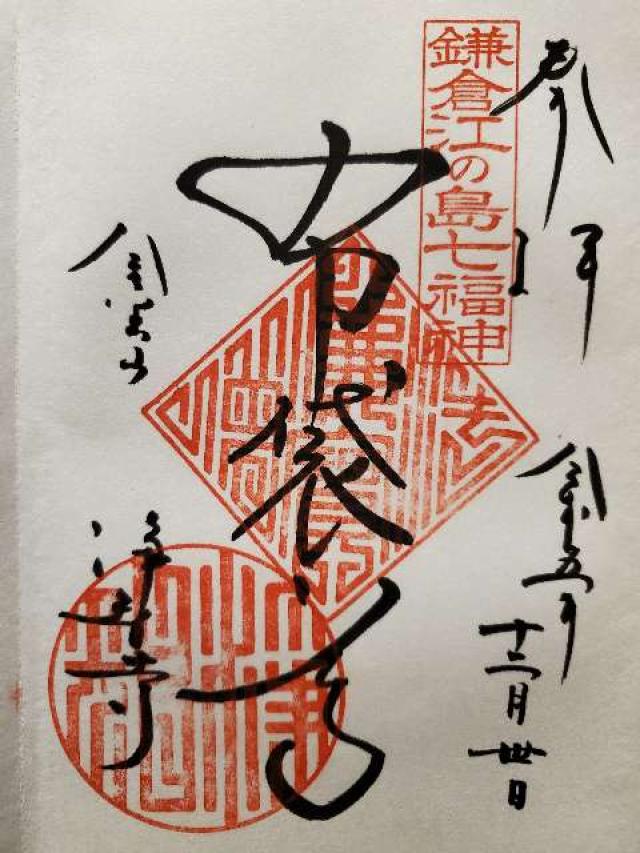 奉拝
鎌倉江の島七福神
令和五年
十二月卅日
布袋尊
金宝山
浄智寺